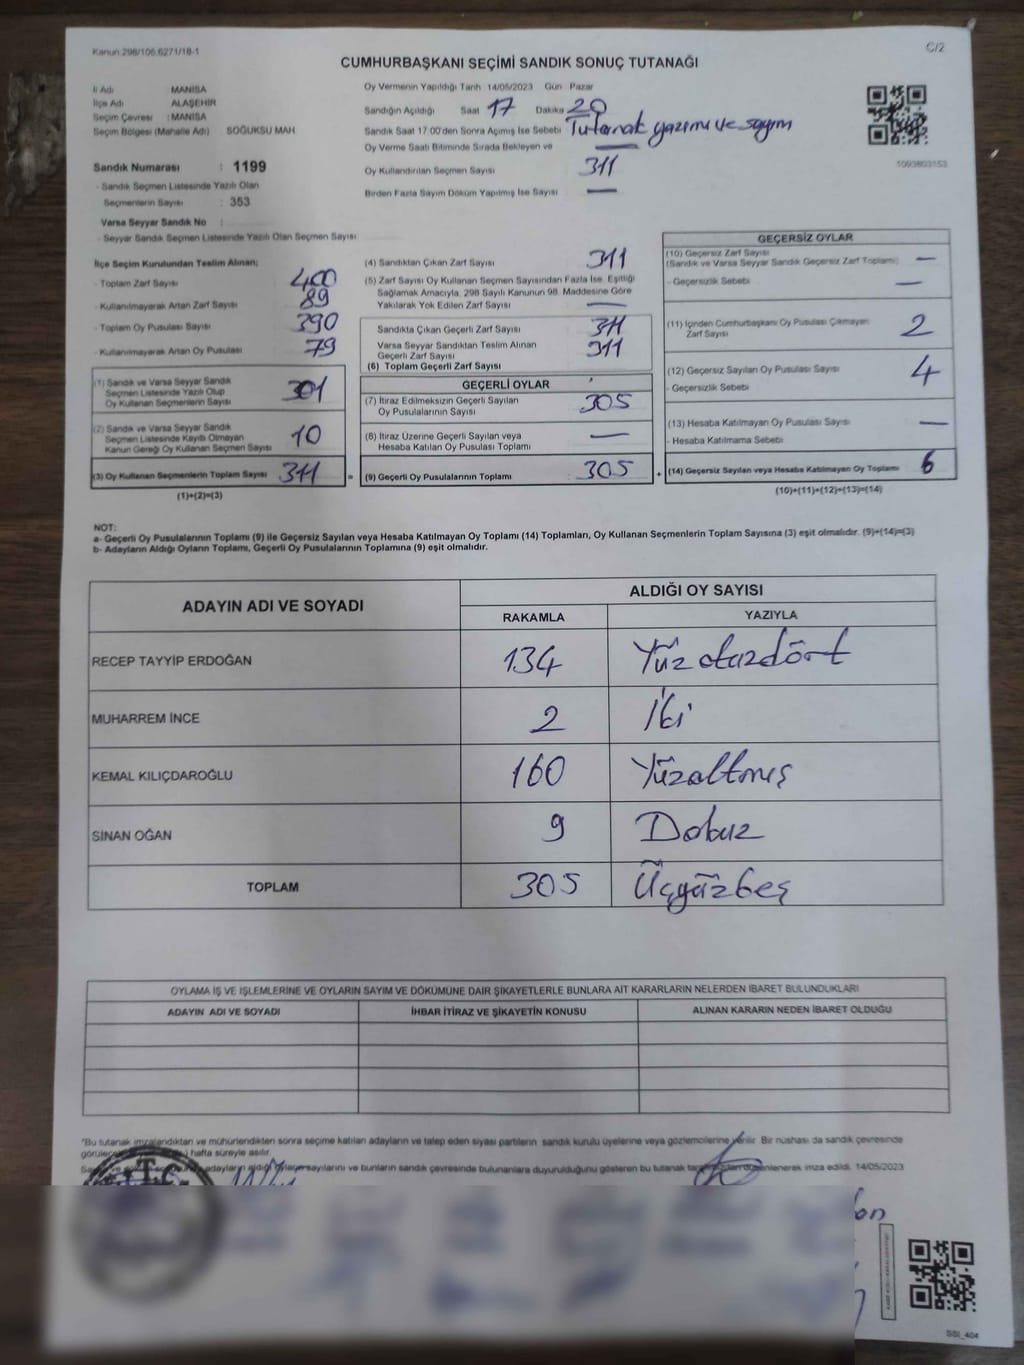 Kanun 298/106.6271/18-1
C/2
CUMHURBAŞKANI SEÇİMİ SANDIK SONUÇ TUTANAĞI
İl Adı MANİSA
İlçe Adı ALAŞEHİR
Seçim Çevresi : MANİSA
Seçim Bölgesi (Mahalle Adı) SOĞUKSU MAH
Sandık Numarası : 1199
- Sandık Seçmen Listesinde Yazılı Olan
Seçmenlerin Sayısı : 353
Varsa Seyyar Sandık No :
- Seyyar Sandık Seçmen Listesinde Yazılı Olan Seçmen Sayısı
Oy Vermenin Yapıldığı Tarih 14/05/2023 Gün Pazar
Sandığın Açıldığı Saat 17 Dakika 20
Sandık Saat 17.00'den Sonra Açmış İse Sebebi Tutanak yazımı ve sayım
Oy Verme Saati Bitiminde Sırada Bekleyen ve —
Oy Kullandırılan Seçmen Sayısı 311
Birden Fazla Sayım Döküm Yapılmış İse Sayısı —
1093803153
İlçe Seçim Kurulundan Teslim Alınan;
- Toplam Zarf Sayısı 400
- Kullanılmayarak Artan Zarf Sayısı 89
- Toplam Oy Pusulası Sayısı 390
- Kullanılmayarak Artan Oy Pusulası 79
(1) Sandık ve Varsa Seyyar Sandık
Seçmen Listesinde Yazılı Olup
Oy Kullanan Seçmenlerin Sayısı 301
(2) Sandık ve Varsa Seyyar Sandık
Seçmen Listesinde Kayıtlı Olmayan
Kanun Gereği Oy Kullanan Seçmen Sayısı 10
(3) Oy Kullanan Seçmenlerin Toplam Sayısı 311 =
(1)+(2)=(3)
(4) Sandıktan Çıkan Zarf Sayısı 311
(5) Zarf Sayısı Oy Kullanan Seçmen Sayısından Fazla İse, Eşitliği
Sağlamak Amacıyla, 298 Sayılı Kanunun 98. Maddesine Göre
Yakılarak Yok Edilen Zarf Sayısı —
Sandıkta Çıkan Geçerli Zarf Sayısı 311
Varsa Seyyar Sandıktan Teslim Alınan
Geçerli Zarf Sayısı 311
(6) Toplam Geçerli Zarf Sayısı
GEÇERLİ OYLAR
(7) İtiraz Edilmeksizin Geçerli Sayılan
Oy Pusulalarının Sayısı 305
(8) İtiraz Üzerine Geçerli Sayılan veya
Hesaba Katılan Oy Pusulası Toplamı —
(9) Geçerli Oy Pusulalarının Toplamı : 305 +
GEÇERSİZ OYLAR
(10) Geçersiz Zarf Sayısı
(Sandık ve Varsa Seyyar Sandık Geçersiz Zarf Toplamı) —
- Geçersizlik Sebebi —
(11) İçinden Cumhurbaşkanı Oy Pusulası Çıkmayan
Zarf Sayısı 2
(12) Geçersiz Sayılan Oy Pusulası Sayısı 4
- Geçersizlik Sebebi
(13) Hesaba Katılmayan Oy Pusulası Sayısı —
- Hesaba Katılmama Sebebi
(14) Geçersiz Sayılan veya Hesaba Katılmayan Oy Toplamı 6
(10)+(11)+(12)+(13)=(14)
NOT:
a- Geçerli Oy Pusulalarının Toplamı (9) ile Geçersiz Sayılan veya Hesaba Katılmayan Oy Toplamı (14) Toplamları, Oy Kullanan Seçmenlerin Toplam Sayısına (3) eşit olmalıdır. (9)+(14)=(3)
b- Adayların Aldığı Oyların Toplamı, Geçerli Oy Pusulalarının Toplamına (9) eşit olmalıdır.
ADAYIN ADI VE SOYADI
ALDIĞI OY SAYISI
RAKAMLA YAZIYLA
RECEP TAYYİP ERDOĞAN 134 Yüz otuzdört
MUHARREM İNCE 2 İki
KEMAL KILIÇDAROĞLU 160 Yüzaltmış
SİNAN OĞAN 9 Dokuz
TOPLAM 305 Üçyüzbeş
OYLAMA İŞ VE İŞLEMLERİNE VE OYLARIN SAYIM VE DÖKÜMÜNE DAİR ŞİKAYETLERLE BUNLARA AİT KARARLARIN NELERDEN İBARET BULUNDUKLARI
ADAYIN ADI VE SOYADI İHBAR İTİRAZ VE ŞİKAYETİN KONUSU ALINAN KARARIN NEDEN İBARET OLDUĞU
*Bu tutanak imzalandıktan ve mühürlendikten sonra seçime katılan adayların ve talep eden siyasi partilerin sandık kurulu üyelerine veya gözlemcilerine verilir. Bir nüshası da sandık çevresinde
hafta süreyle asılır.
adayların aldığı oyların sayılarını ve bunların sandık çevresinde bulunanlara duyurulduğunu gösteren bu tutanak imza edildi. 14/05/2023
SSI_404